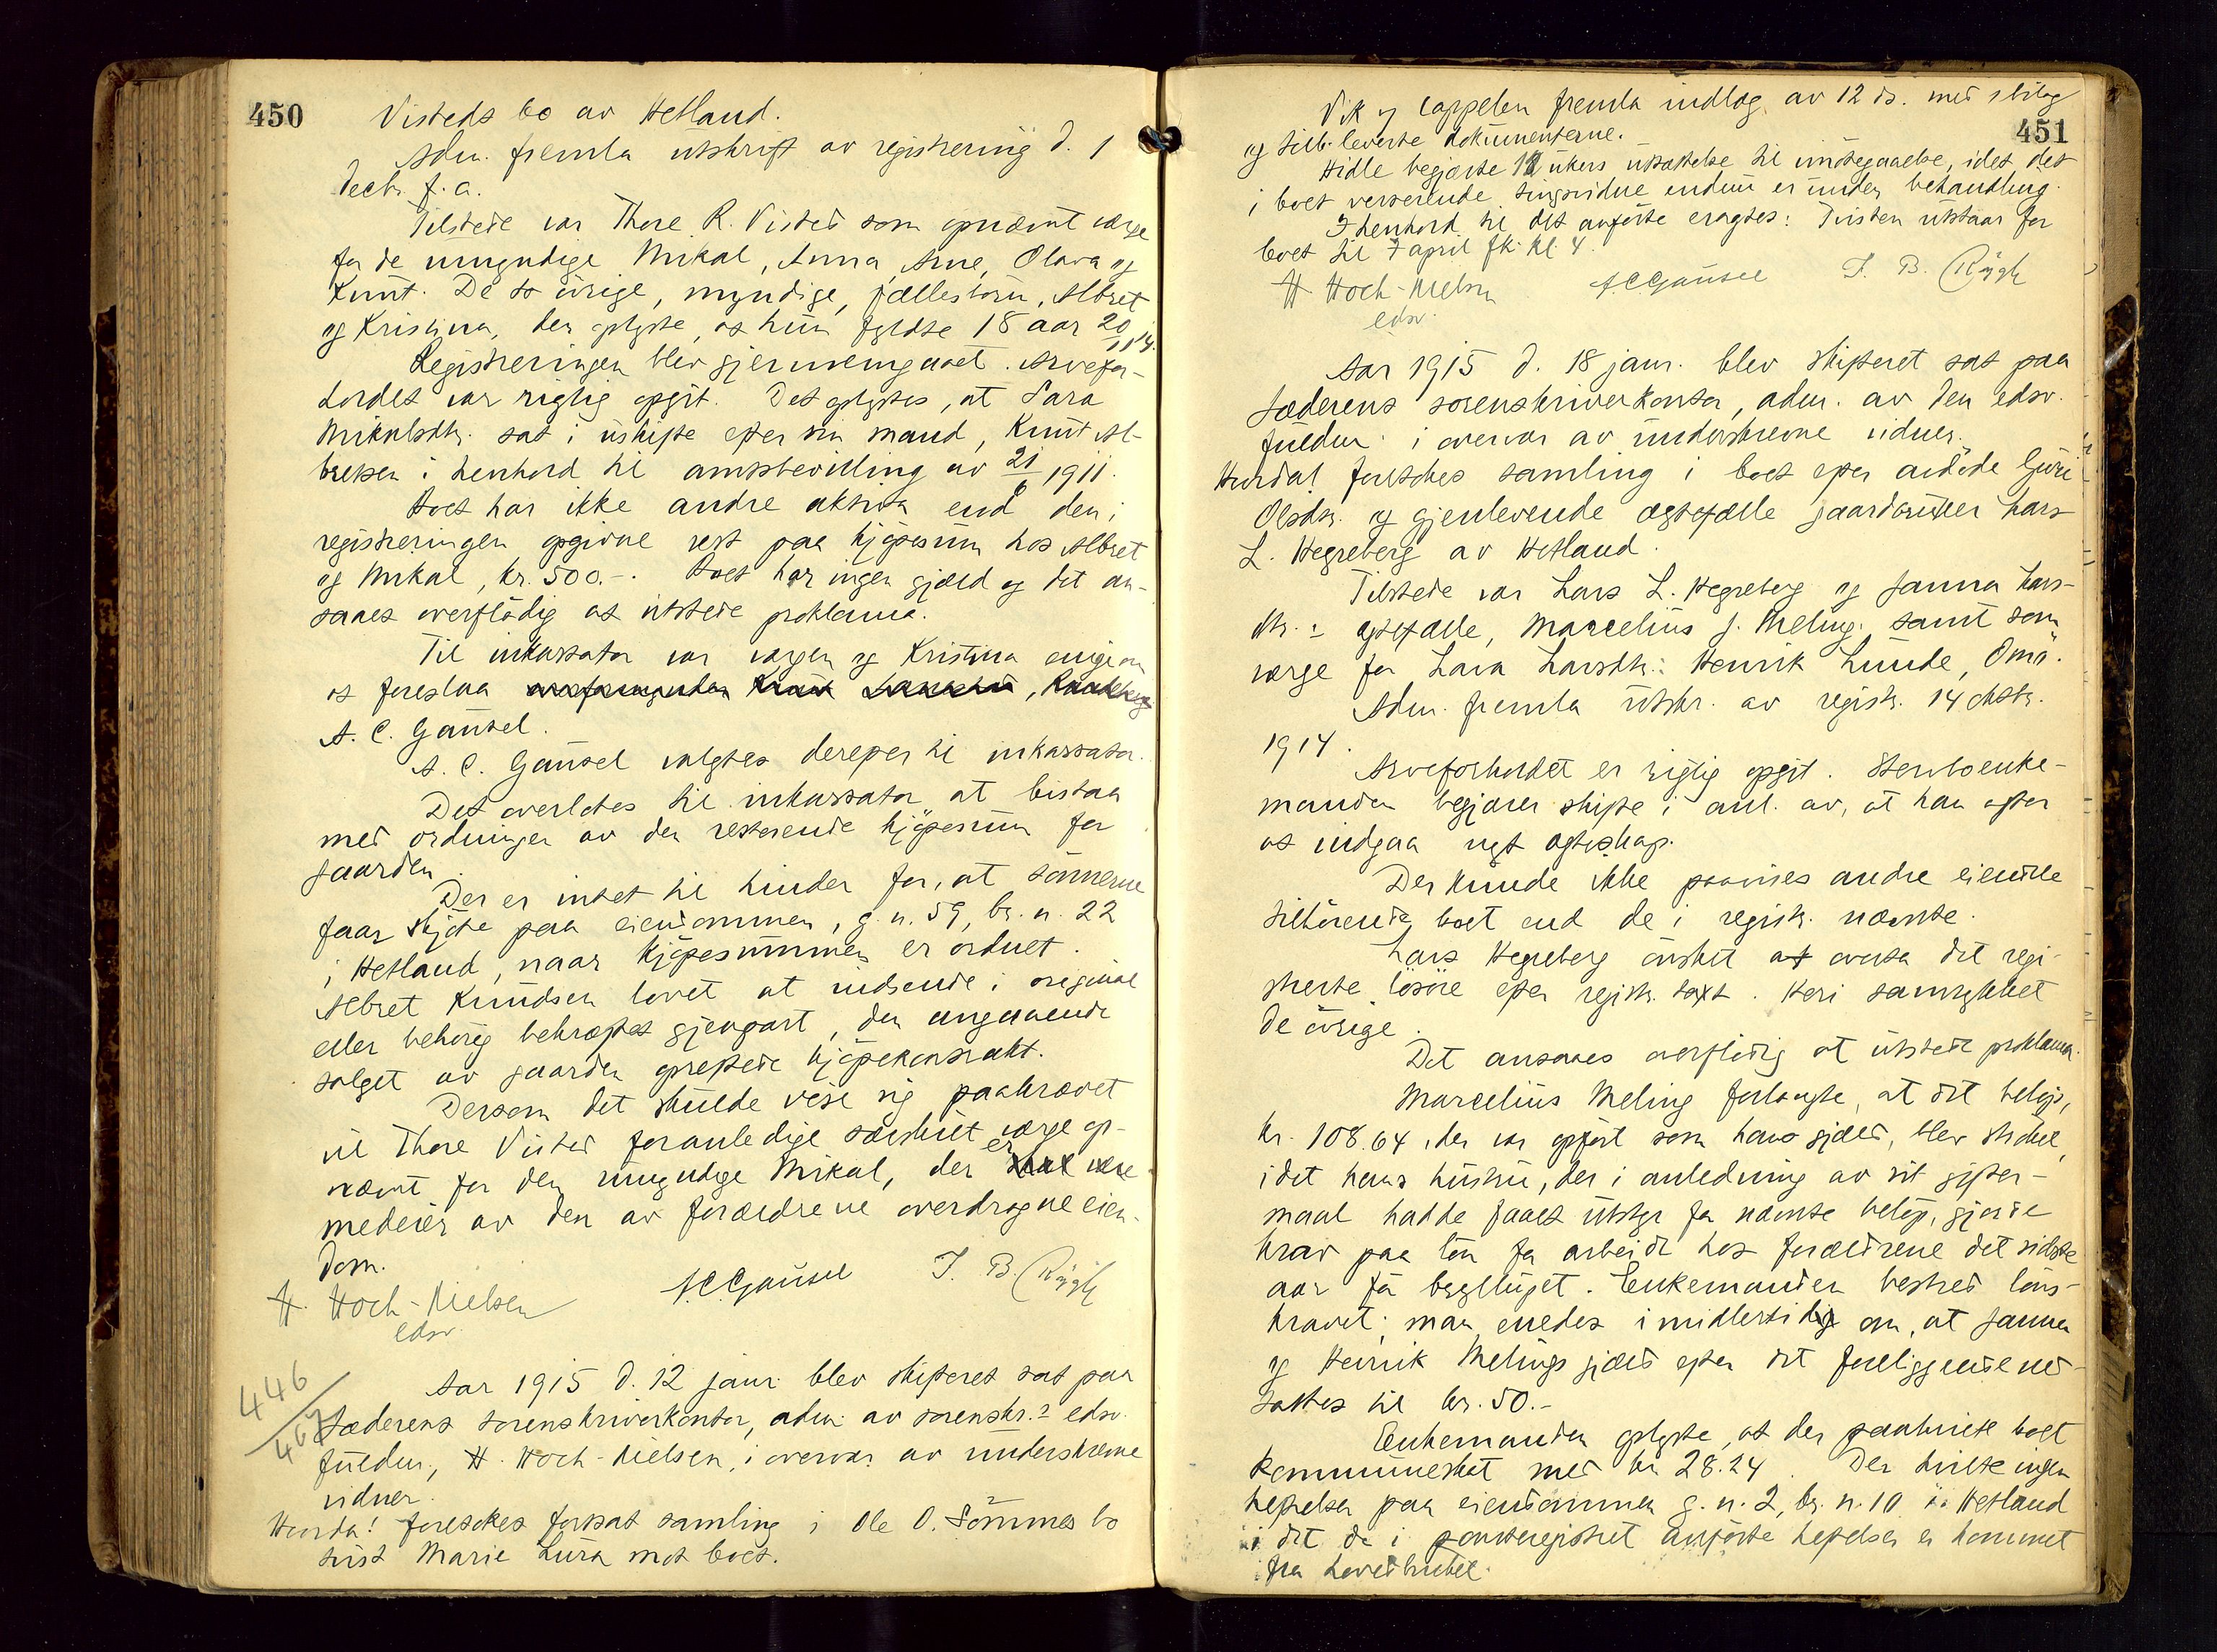 450
Visteds bo av Hetland.
Adm. fremla utskrift av registrering d. 1
decbr. f. a.
Tilstede var Thore R. Visted som opnævnt værge
for de umyndige Mikal, Anna, Arne, Olava og
Knut. De to øvrige, myndige, fællesbørn, Albret
og Kristina, der oplyste at hun fyldte 18 aar 20/11 14.
Registreringen blev gjennemgaaet. Arvefor-
holdet var rigtig opgit. Det oplystes, at Sara
Mikalsdtr. sat i uskifte efter sin mand, Knut Al-
bretsen i henhold til amtsbevilling av 21/6 1911.
Boet har ikke andre aktiva end den i
registreringen opgivne rest paa kjøpesum hos Albret
og Mikal, kr. 500.-. Boet har ingen gjæld og det an-
saaes overflødig at utstede proklama.
Til inkassator var værgen og Kristina enige om
at foreslaa
A. C. Gausel.
A. C. Gausel valgtes derefter til inkassator.
Det overlotes til inkassator at bistaa
med ordningen av den resterende kjøpesum for
gaarden.
Der er intet til hinder for, at sønnerne
faar skjøte paa eiendommen, g. n. 59, br. n. 22
i Hetland, naar kjøpesummen er ordnet.
Albret Knudsen lovet at indsende i original
eller behørig bekræftet gjenpart, den angaaende
salget av gaarden oprettede kjøpekontrakt.
Dersom det skulde vise sig paakrævet
vil Thore Visted foranledige særskilt værge op-
nævnt for den umyndige Mikal, der er
medeier av den av forældrene overdragne eien-
dom.
H. Hoch-Nielsen A C Gausel T. B. Rygh
edsv.
446
467
Aar 1915 d. 12 janr. blev skifteret sat paa
Jæderens sorenskriverkontor, adm. av sorenskr.s edsv.
fuldm., H. Hoch-Nielsen, i overvær av underskrevne
vidner.
Hvorda! foretokes fortsat samling i Ole O. Sømmes bo
tvist Marie Lura mot boet.
451
Vik og Cappelen fremla indlæg av 12 ds. med 1 bilag
og tilb. leverte dokumenterne.
Hidle begjærte 12 ukers utsættelse til imøtegaaelse, idet det
i boet verserende tingsvidne endnu er under behandling.
I henhold til det anførte eragtes: Tvisten utstaar for
boet til 7 april fk. kl. 4.
H Hoch-Nielsen A C Gausel T. B. Rygh
edsv.
Aar 1915 d. 18 janr. blev skifteret sat paa
Jæderens sorenskriverkontor, adm. av den edsv.
fuldm. i overvær av underskrevne vidner.
Hvorda! foretokes samling i boet efter avdøde Guri
Olsdtr. og gjenlevende ægtefælle gaardbruker Lars
L. Hegreberg av Hetland.
Tilstede var Lars L. Hegreberg og Janna Lars-
dtr.s egtefælle, Marcelius J. Meling. samt som
værge for Lava Larsdtr.: Henrik Lunde, Omø.
Adm. fremla utskr. av registr. 14 oktbr.
1914.
Arveforholdet er rigtig opgit. Stervboenke-
manden begjærer skifte i anl. av, at han agter
at indgaa nyt egteskap.
Der kunde ikke paavises andre eiendele
tilhørende boet end de i registr. nævnte.
Lars Hegreberg ønsket at overta det regi-
strerte løsøre efter registr. taxt. Heri samtykket
de øvrige.
Det ansaaes overflødig at utstede proklama.
Marcelius Meling forlangte, at det beløp,
kr. 108.64, der var opført som hans gjæld, blev strøket,
idet hans hustru, der i anledning av sit gifter-
maal hadde faaet utstyr for nævnte beløp, gjorde
krav paa løn for arbeide hos forældrene det sidste
aar før bryllupet. Enkemanden bestred løns-
kravet; man enedes imidlertidig om, at Janna
og Henrik Melings gjæld efter det foreliggende ned-
sættes til kr. 50.-
Enkemanden oplyste, at der paahvilte boet
kommuneskat med kr 28.24. Der hvilte ingen
heftelser paa eiendommen g. n. 2, br. n. 10 i Hetland
idet de i panteregistret anførte heftelser er kommet
fra hovedbruket.